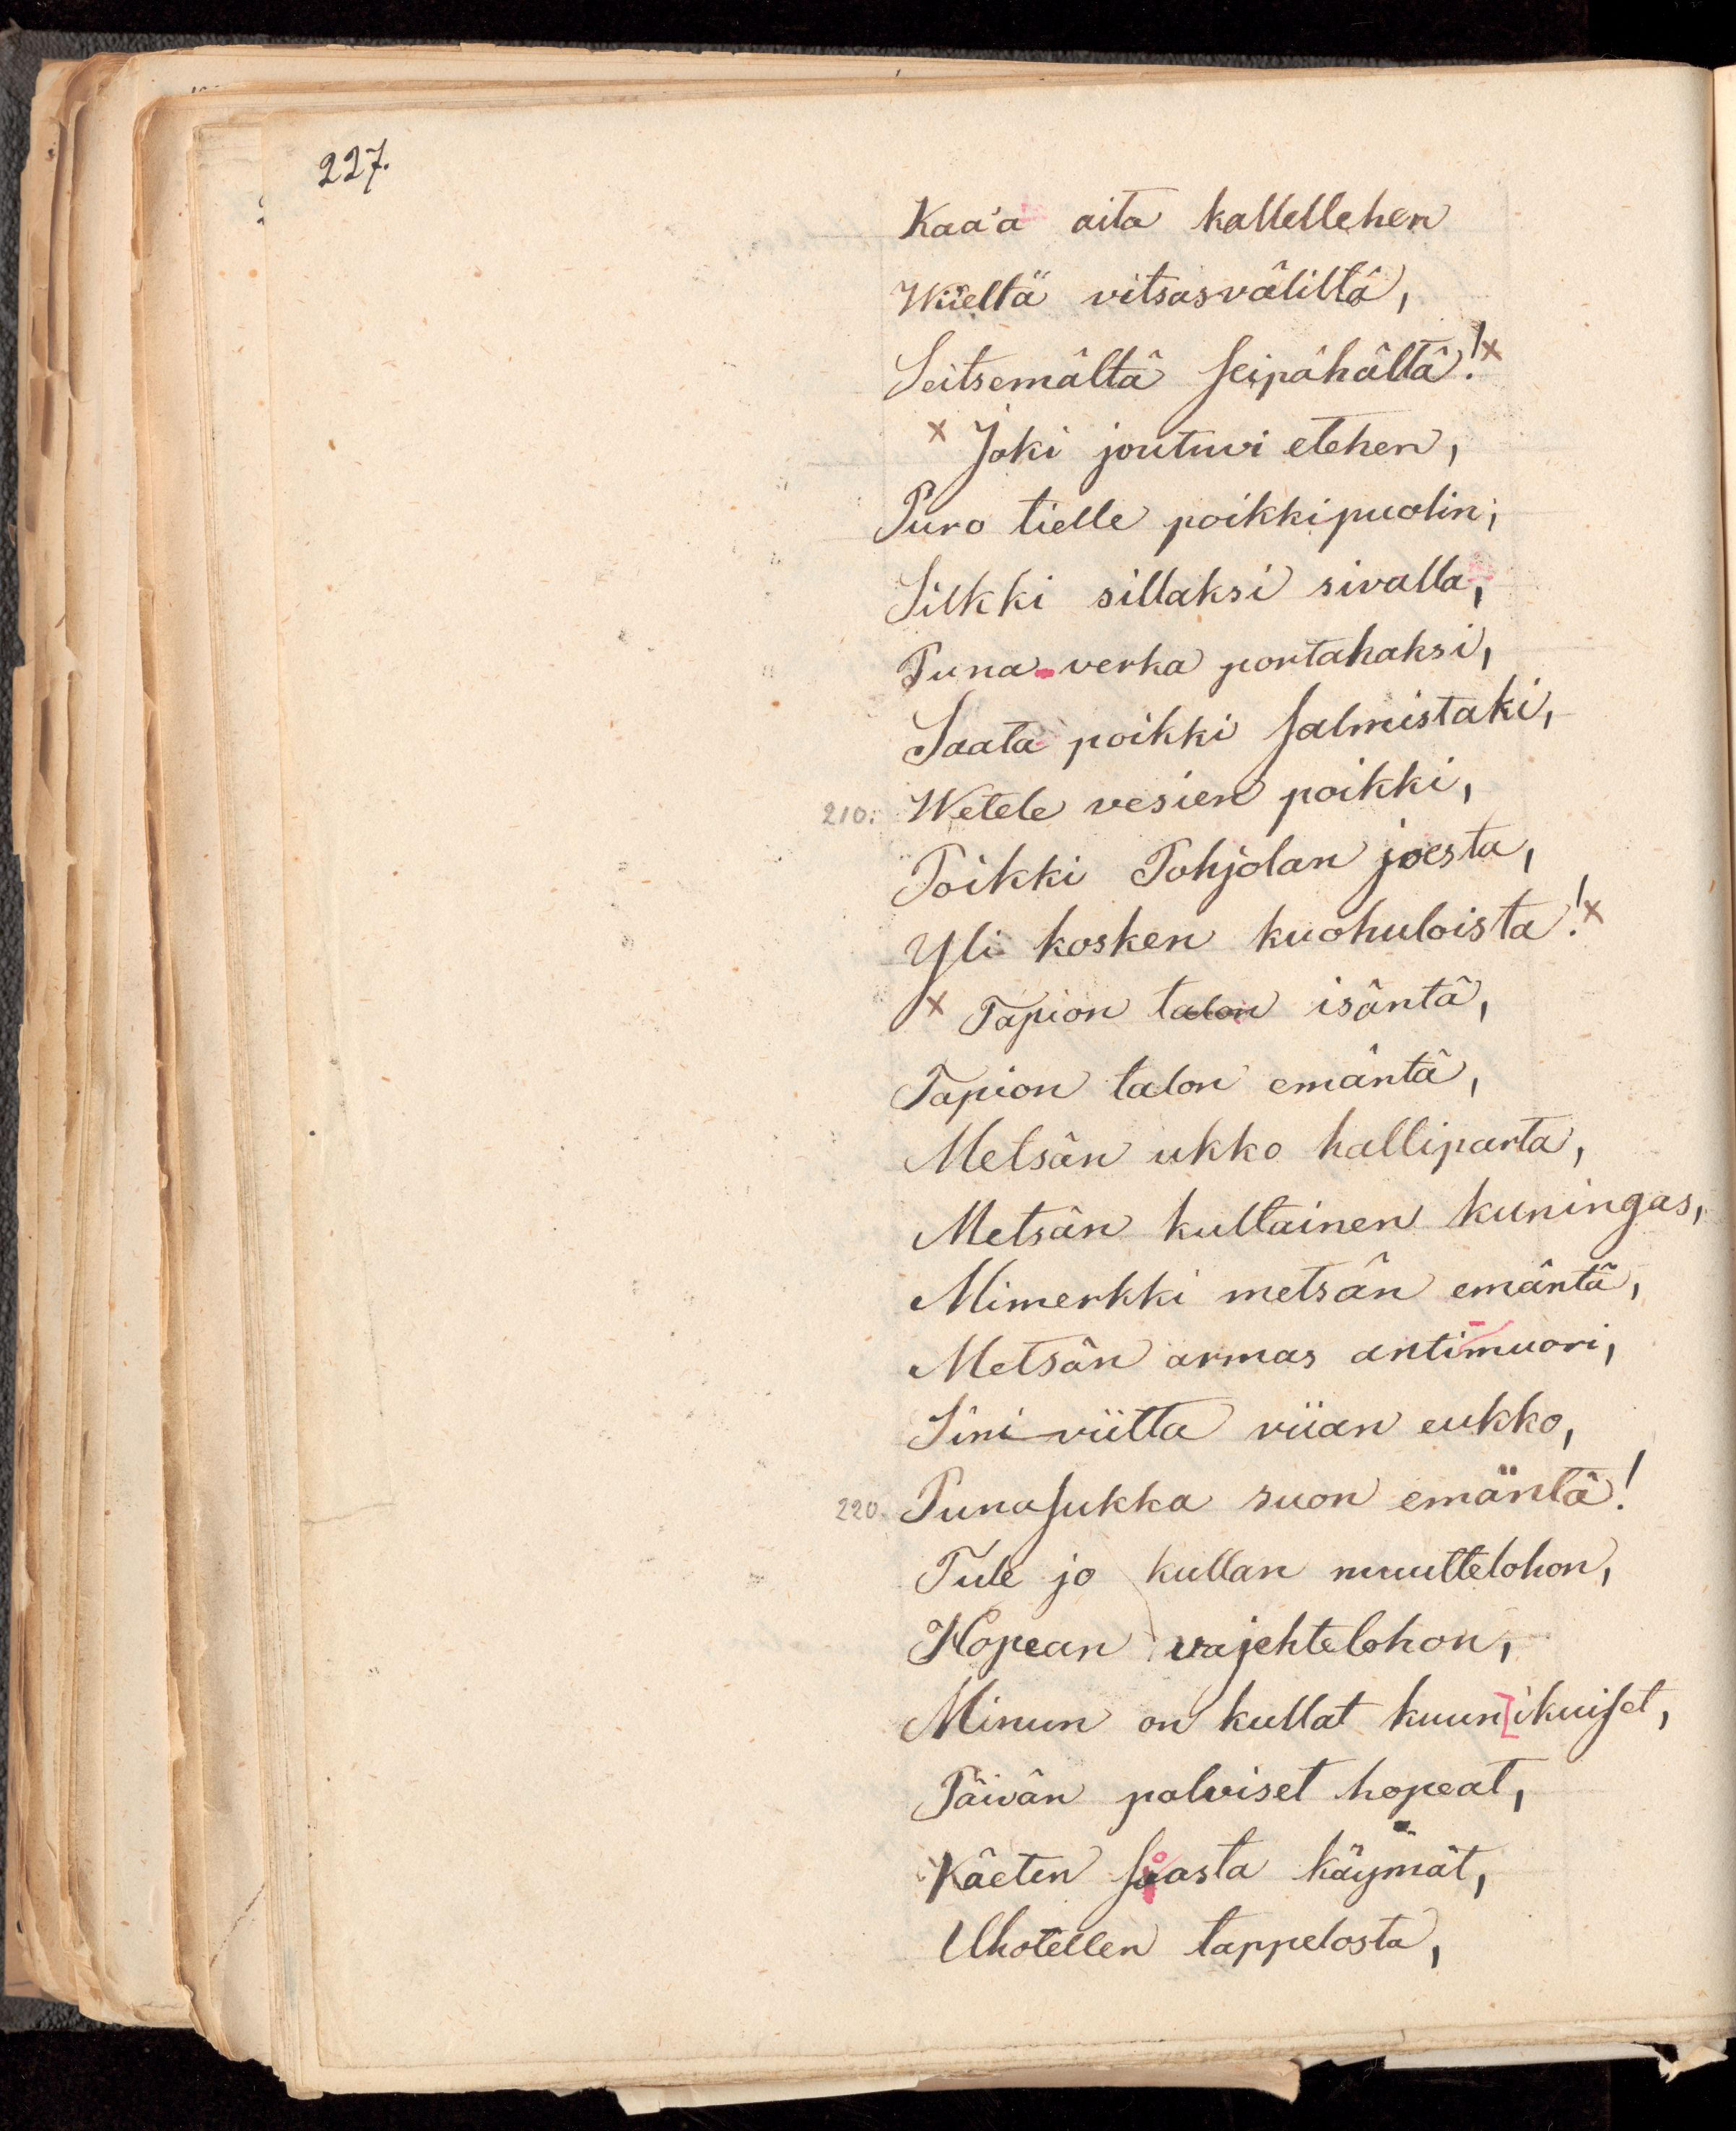 227.
Kaa'a aita kallellehen
Wiieltä vitsasväliltä,
Seitsemältä seipähältä! x
x Joki joutuvi etehen,
Puro tielle poikkipuolin;
Silkki sillaksi sivalla,
Puna-verka portahaksi,
Saata poikki salmistaki,
210. Wetele vesien poikki,
Poikki Pohjolan joesta,
Yli kosken kuohuloista! x
x Tapion talon isäntä,
Tapion talon emäntä,
Metsän ukko halliparta,
Metsän kultainen kuningas,
Mimerkki metsän emäntä,
Metsän armas antimuori,
Siniviitta viian eukko,
220. Punasukka suon emäntä!
Tule jo kullan muuttelohon,
Hopean vajehtelohon,
Minun on kullat kuun ikuiset,
Päivän palviset hopeat,
Käeten soasta käymät,
Uhotellen tappelosta,